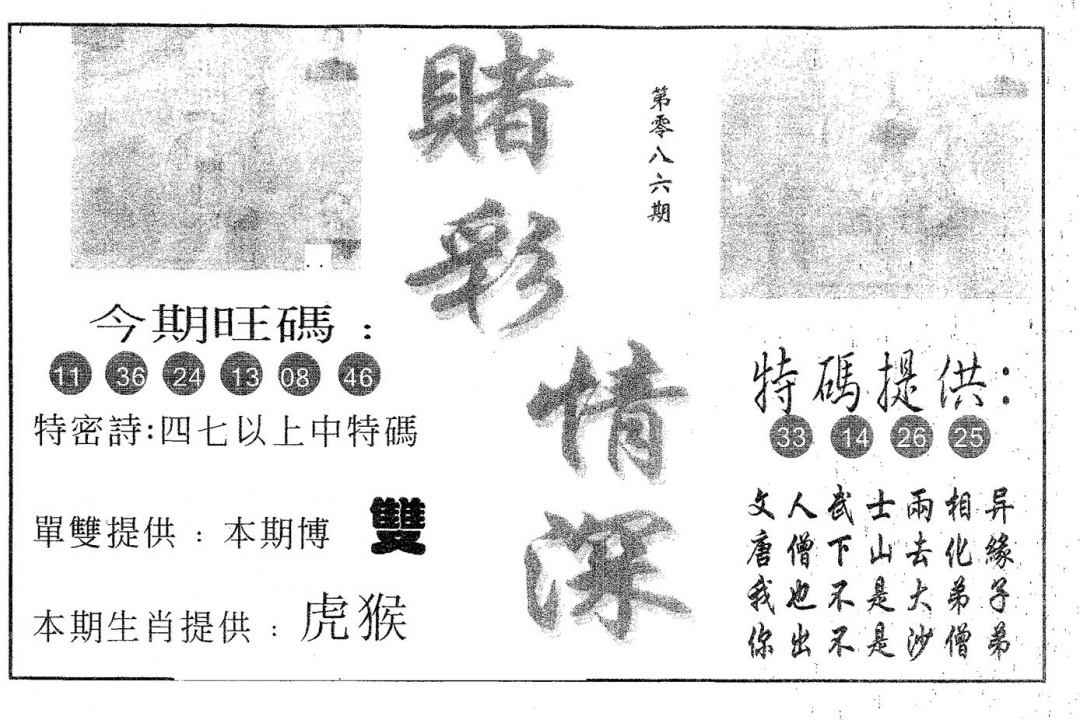 賭彩情深
第零八六期
今期旺碼：
11 36 24 13 08 46
特密詩:四七以上中特碼
單雙提供：本期博 雙
本期生肖提供：虎猴
特碼提供：
33 14 26 25
文人武士兩相异
唐僧下山去化緣
我也不是大弟子
你出不是沙僧弟